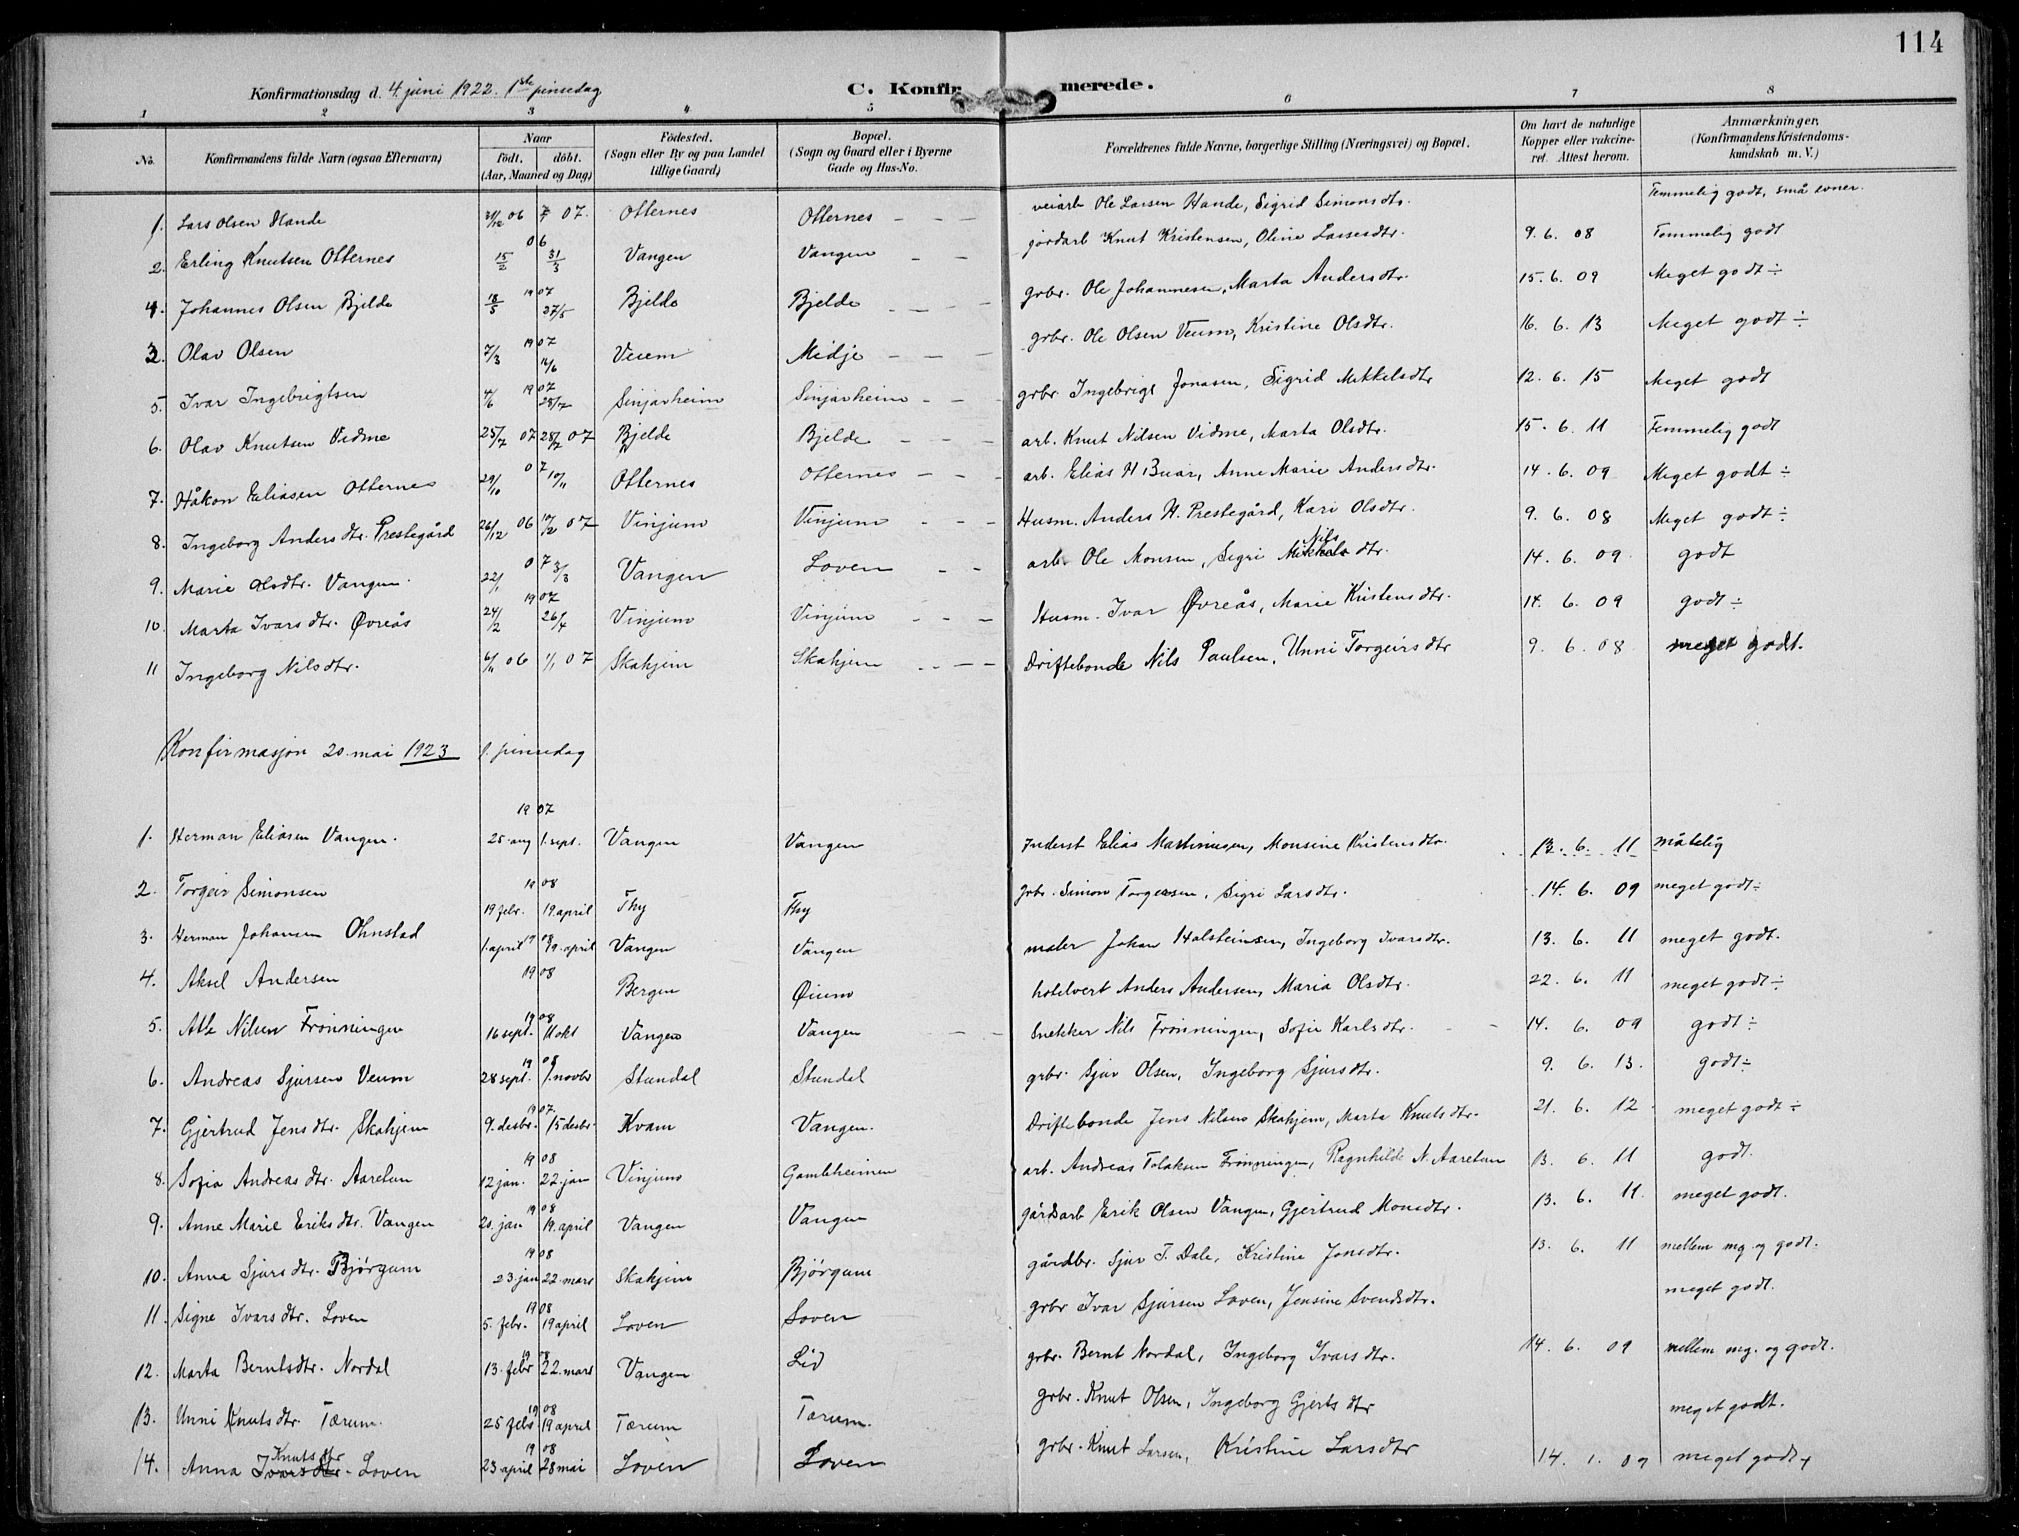 114
Konfirmationsdag d. 4. juni 1922. 1ste pinsedag
C. Konfirmerede.
1 2 3 4 5 6 7 8
No. Konfirmandens fulde Navn (ogsaa Efternavn) Naar født. døbt. (Aar, Maaned og Dag) Fødested. (Sogn eller By og paa Landet tillige Gaard) Bopæl. (Sogn og Gaard eller i Byerne Gade og Hus-No. Forældrenes fulde Navne, borgerlige Stilling (Næringsvei) og Bopæl. Om havt de naturlige Kopper eller vakcineret. Attest herom. Anmærkninger, (Konfirmandens Kristendomskundskab m. V.)
1. Lars Olsen Hande 31/12 06 07. Otternes Otternes - - - veiarb Ole Larsen Hande, Sigrid Simonsdtr. Temmelig godt, små evner.
2. Erling Knutsen Otternes 06 15/2 31/3 Vangen Vangen - - jordarb Knut Kristensen, Oline Larsesdtr. 9. 6. 08 Temmelig godt
4. Johannes Olsen Bjelde 1907 18/5 27/5 Bjelde Bjelde - - - grbr. Ole Johannesen, Marta Andersdtr. 15. 6. 09 Meget godt ÷
3. Olav Olsen 1907 7/3 16/6 Veum Midje - - - grbr. Ole Olsen Veum, Kristine Olsdtr. 16. 6. 13 Meget godt ÷
5. Ivar Ingebrigtsen 1907 4/6 28/7 Sinjarheim Sinjarheim - - - grbr. Ingebrigt Jonasen, Sigrid Mikkelsdtr 12. 6. 15 Meget godt
6. Olav Knutsen Vidme 25/7 07 28/7 07 Bjelde Bjelde - - - arb. Knut Nilsen Vidme, Marta Olsdtr. 15. 6. 11 Temmelig godt
7. Håkon Eliasen Otternes 07 29/10 10/11 Otternes Otternes - - - arb. Elias H Buar, Anne Marie Andersdtr. 14. 6. 09 Meget godt ÷
8. Ingeborg Andersdtr. Prestegård 26/12 06 10/2 07 Vinjum Vinjum - - - Husm. Anders H. Prestegård, Kari Olsdtr. 9. 6. 08 Meget godt ÷
9. Marie Olsdtr. Vangen. 07 22/1 3/3 Vangen Loven - - arb. Ole Monsen, Sigri Mikkels Nilsdtr. 14. 6. 09. godt
10. Marta Ivarsdtr. Øvreås 1907 24/2 26/4 Vinjum Vinjum - - - Husm. Ivar Øvreås, Marie Kristensdtr. 14. 6. 09 godt ÷
11 Ingeborg Nilsdtr. 6/11 06 1/1 07 Skahjem Skahjem - - - Driftebonde Nils Paulsen, Unni Torgeirsdtr 9. 6. 08 meget godt.
Konfirmasjon 20. mai 1923 1. pinsedag
1907
1. Herman Eliasen Vangen. 25. aug 1. sept. Vangen Vangen Inderst Elias Martinusen, Monsine Kristensdtr. 13. 6. 11 måtelig
2. Torgeir Simonsen 1908 19 febr. 19. april Thy Thy grbr. Simon Torgersen, Sigri Larsdtr. 14. 6. 09 meget godt ÷
3. Herman Johansen Ohnstad 1908 1. april 19. april Vangen Vangen maler Johan Holsteinsen, Ingeborg Ivarsdtr. 13. 6. 11 meget godt.
4. Aksel Andersen 1908 Bergen Øium hotelvert Anders Andersen, Maria Olsdtr. 22. 6. 11 meget godt ÷
5. Atle Nilsen Frønningen 1908 16 sept. 11 okt Vangen Vangen Snekker Nils Frønningen, Sofie Karlsdtr. - - 14. 6. 09 godt ÷
6. Andreas Sjursen Veum 1908 28 sept. 1. novbr Stundal Stundal grbr. Sjur Olsen, Ingeborg Sjursdtr. 9. 6. 13. godt ÷
7. Gjertrud Jensdtr. Skahjem 1907. 9. desbr. 15 desbr. Kvam Vangen. Driftebonde Jens Nilsen Skahjem, Marta Knutsdtr. 21. 6. 12 meget godt ÷
8. Sofia Andreasdtr. Aaretun 1908 12 jan. 22. jan Vinjum Gamleheimen arb. Andreas Tolaksen Frønningen, Ragnhilde N. Aaretun 13. 6. 11 godt.
9. Anne Marie Eriksdtr. Vangen 1908 20. jan 19. april Vangen Vangen gårdsarb Erik Olsen Vangen, Gjertrud Monsdtr. 13. 6. 11. meget godt.
10. Anna Sjursdtr. Bjørgum 1908 23. jan 22. mars Skahjem Bjørgum gårdbr. Sjur T. Dale, Kristine Jonsdtr. 13. 6. 11 mellem mg. og godt.
11. Signe Ivarsdtr. Loven 1908 5. febr. 19 april Loven Loven grbr Ivar Sjursen Loven, Jensine Svendsdtr. meget godt.
12. Marta Berntsdtr. Nordal 1908 13. febr 22. mars Vangen Lid grbr. Bernt Nordal, Ingeborg Ivarsdtr. 14. 6. 09 mellem mg. og godt.
13. Unni Knutsdtr. Tærum. 1908 25 feb 19 april Tærum Tærum. grbr. Knut Olsen, Ingeborg Gjertsdtr meget godt.
14. Anna Ivarsdtr Knutsdtr. Loven 1908 23 april 28 mai Loven Loven grbr. Knut Larsen, Kristine Larsdtr 14. 1. 09 meget godt +